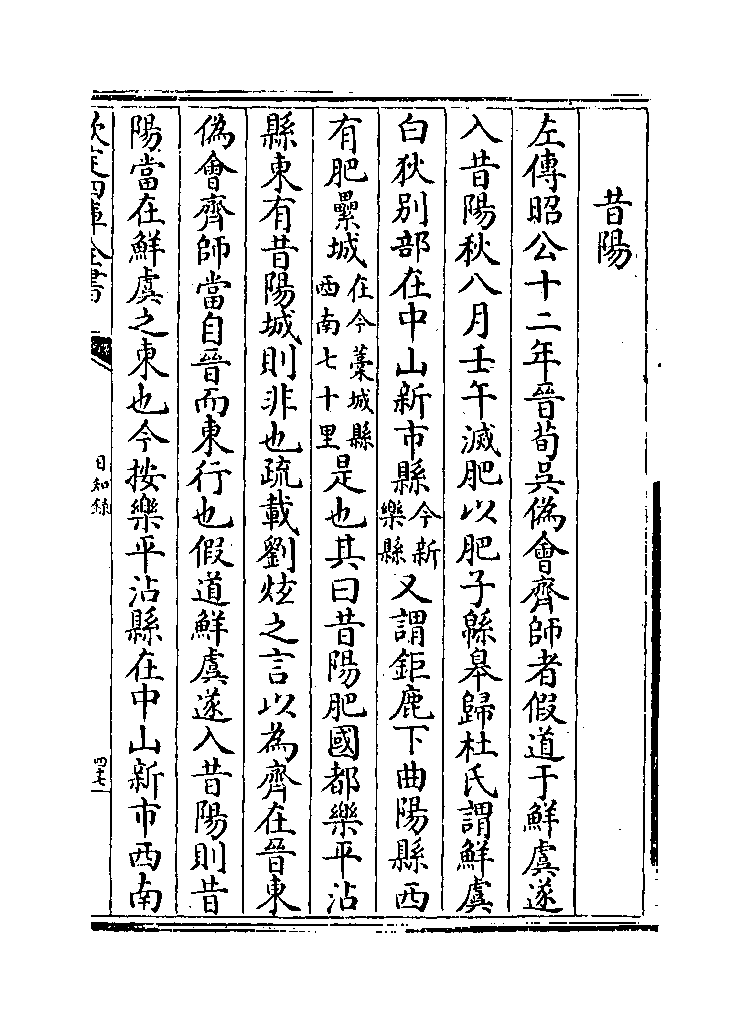 昔陽
左傳昭公十二年晉荀吳偽會齊師者假道于鮮虞遂
入昔陽秋八月壬午滅肥以肥子緜臯歸杜氏謂鮮虞
白狄别部在中山新市縣今新樂縣又謂鉅鹿下曲陽縣西
有肥纍城在今藁城縣西南七十里是也其曰昔陽肥國都樂平沾
縣東有昔陽城則非也疏載劉炫之言以為齊在晉東
偽會齊師當自晉而東行也假道鮮虞遂入昔陽則昔
陽當在鮮虞之東也今按樂平沾縣在中山新市西南
欽定四庫全書
日知録
四七